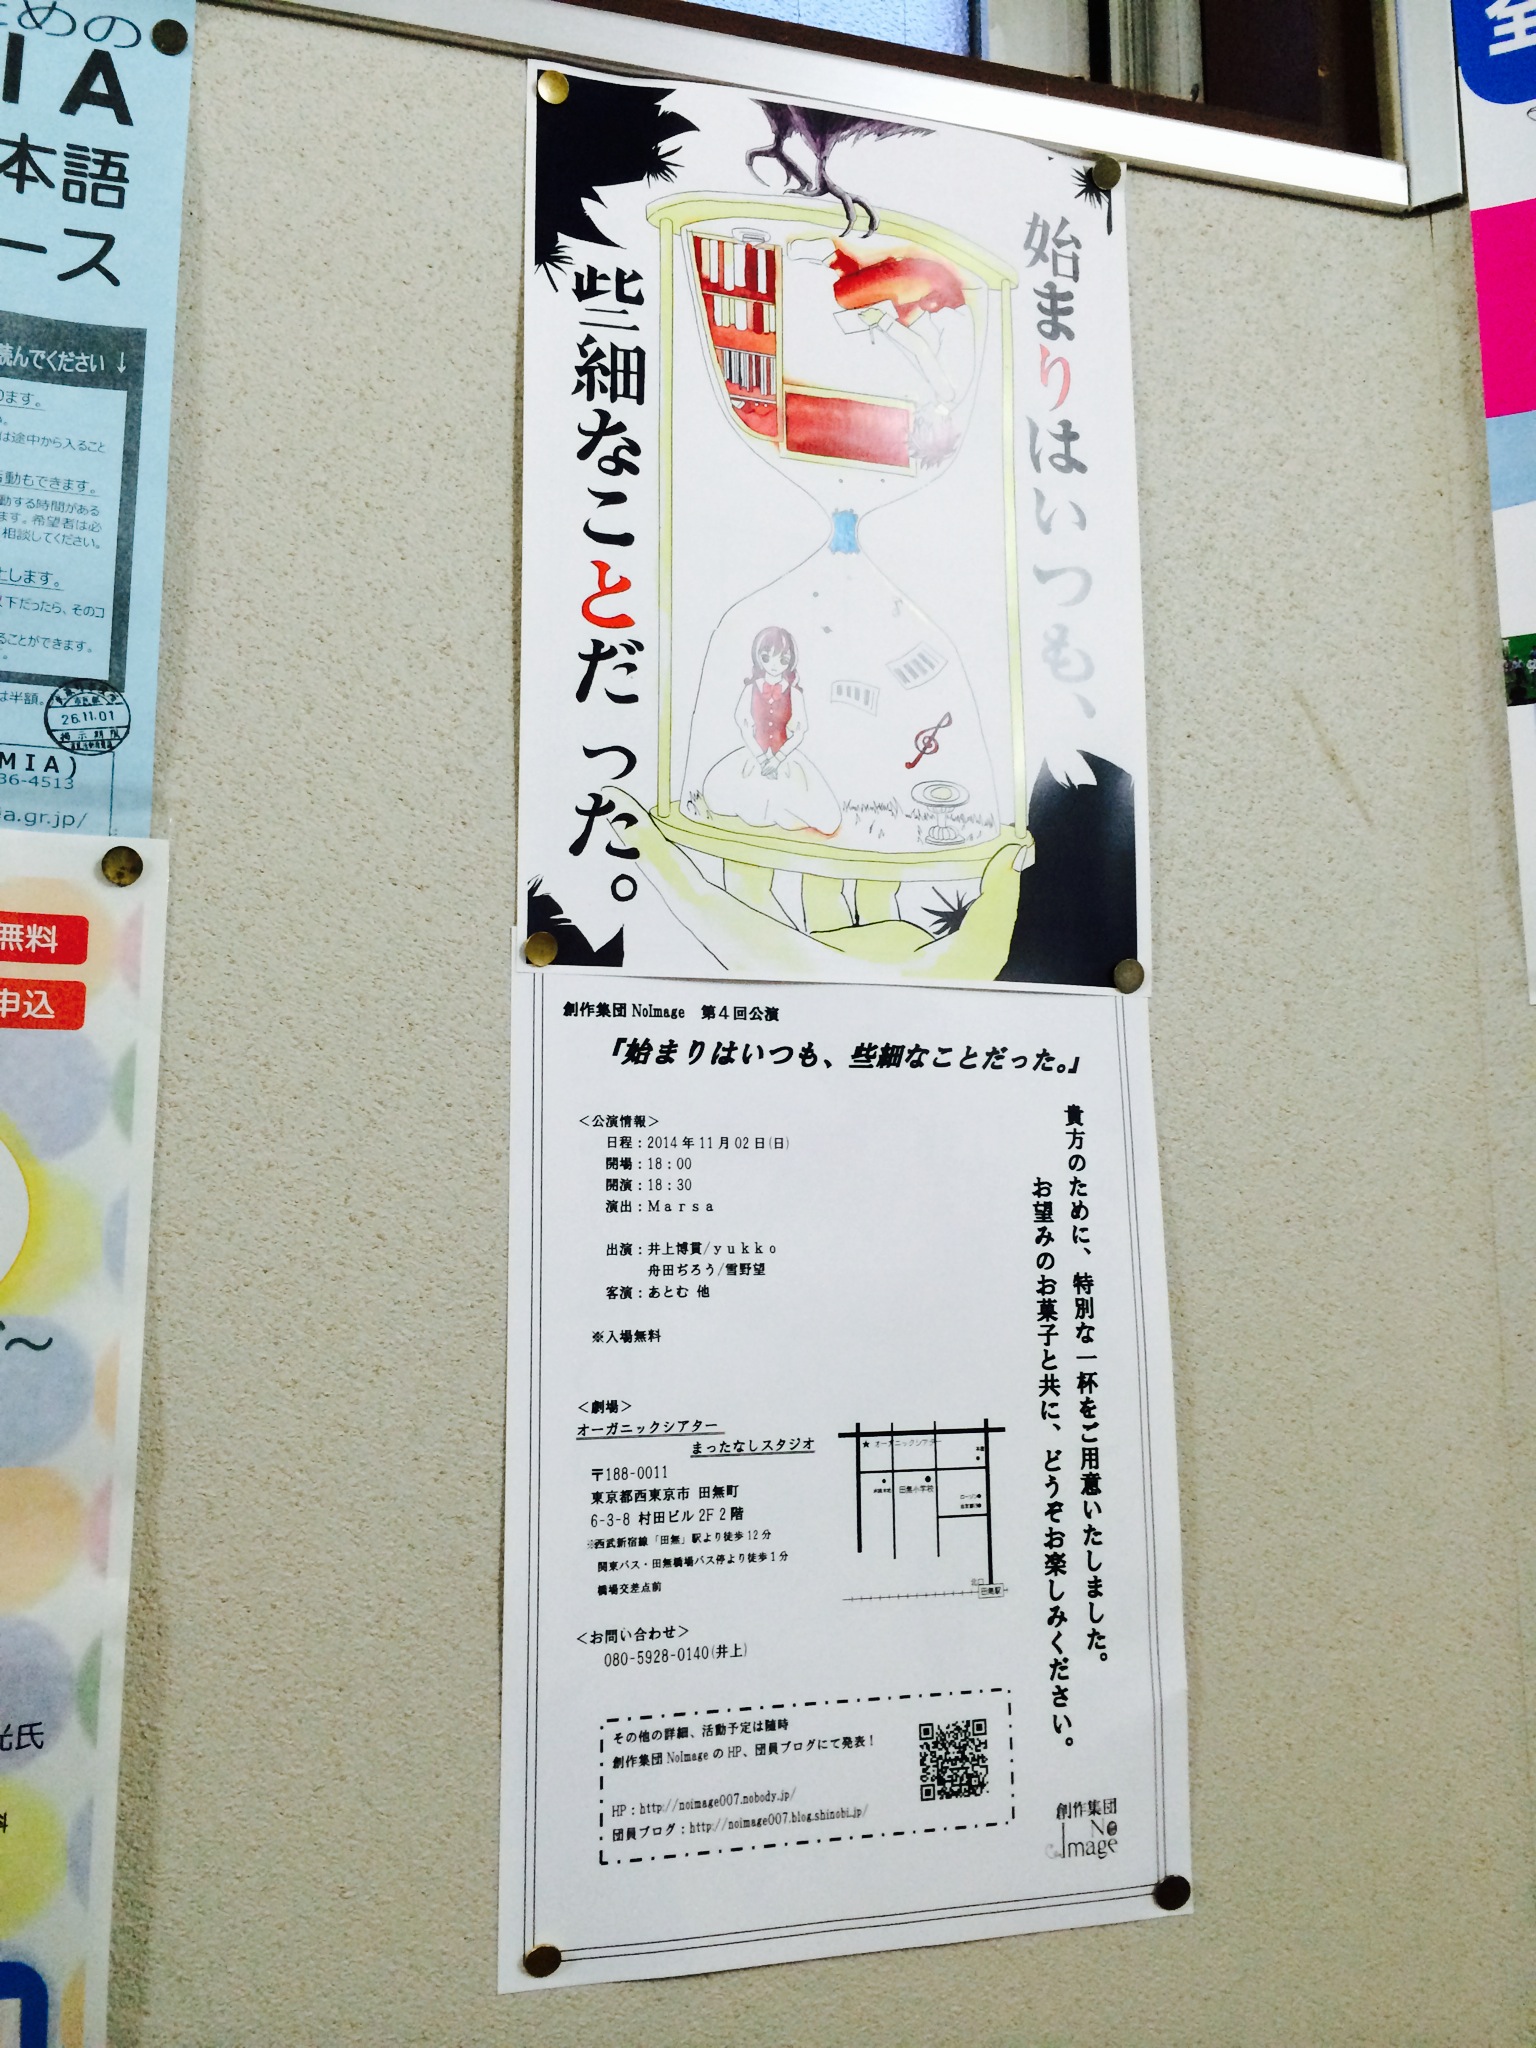 めの
IA
本語
ース
読んでください↓
ります。
は途中から入ること
活動もできます。
動する時間がある
ます。希望者は必
相談してください。
とします。
以下だったら、そのコ
ることができます。
は半額。
26.11.01
MIA)
36-4513
a.gr.jp/
無料
申込
光氏
始まりはいつも、
些細なことだった。
創作集団 NoImage 第4回公演
『始まりはいつも、些細なことだった。』
<公演情報>
日程:2014年11月02日(日)
開場:18:00
開演:18:30
演出:Marsa
出演:井上博貫/yukko
舟田ぢろう/雪野望
客演:あとむ 他
※入場無料
貴方のために、特別な一杯をご用意いたしました。
お望みのお菓子と共に、どうぞお楽しみください。
<劇場>
オーガニックシアター
まったなしスタジオ
〒188-0011
東京都西東京市 田無町
6-3-8 村田ビル2F 2階
※西武新宿線「田無」駅より徒歩12分
関東バス・田無橋場バス停より徒歩1分
橋場交差点前
★オーガニックシアター
田無小学校
北口
田無駅
<お問い合わせ>
080-5928-0140(井上)
その他の詳細、活動予定は随時
創作集団 NoImage の HP、団員ブログにて発表!
HP:http://noimage007.nobody.jp/
団員ブログ:http://noimage007.blog.shinobi.jp/
創作集団
No
Image